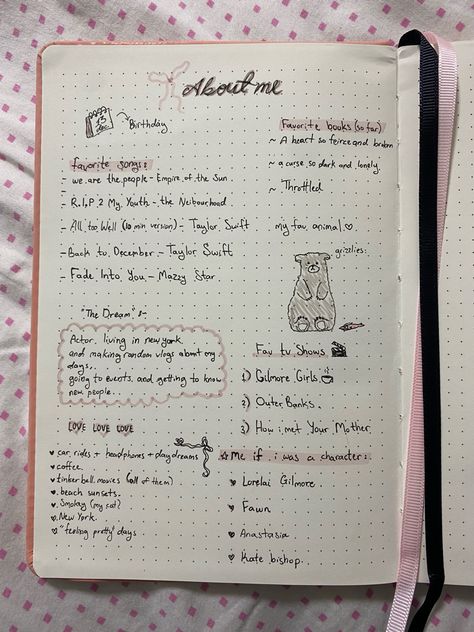 About me
13
Dec
Birthday
Favorite books (so far)
~ A heart so feirce and broken
~ a curse so dark and lonely.
~ Throttled
favorite songs:
- we are the people - Empire of the Sun.
- R.I.P 2 My Youth - the Neibourhood
- All Too Well (10 min version) - Taylor Swift
- Back to December - Taylor Swift
- Fade Into You - Mazzy Star
my fav animal
grizzlies:
"The Dream" :-
Actor, living in new york
and making random vlogs about my
days..
going to events. and getting to know
new people..
Fav tv Shows
1) Gilmore Girls
2) Outer Banks.
3) How i met Your Mother
LOVE LOVE LOVE
car rides + headphones + day dreams
coffee.
tinkerbell movies (all of them)
beach sunsets.
Smokay (my cat)
New York.
"feeling pretty" days
Me if i was a character:.
Lorelai Gilmore.
Fawn
Anastasia
Kate bishop.